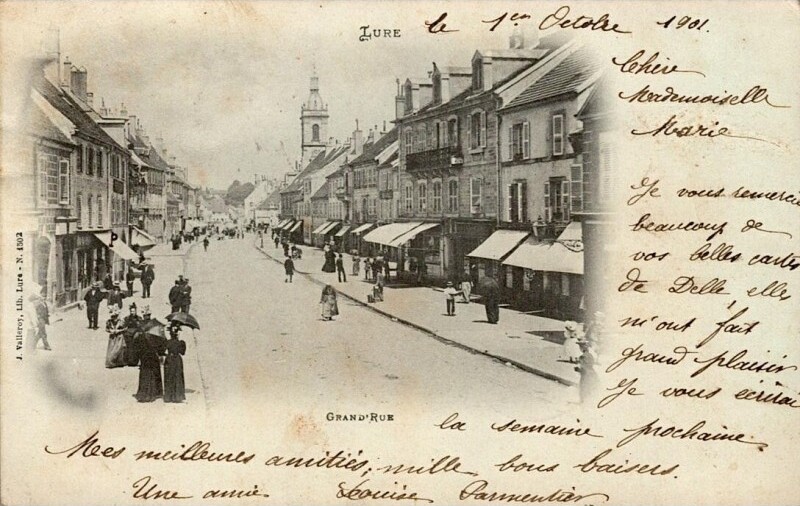 LURE
le 1er Octobre 1901.
Chère
Mademoiselle
Marie
Je vous remercie
beaucoup de
vos belles cartes
de Delle, elles
m'ont fait
grand plaisir
Je vous écrirai
la semaine prochaine.
Mes meilleures amitiés, mille bons baisers.
Une amie Louise Parmentier
GRAND'RUE
J. Valleroy, Lib. Lure - N. 1502